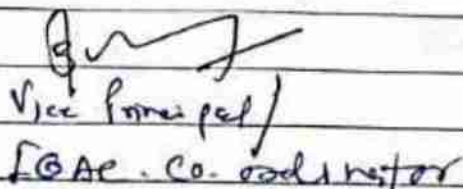 Vice Principal/
IQAC. Co. ordinator